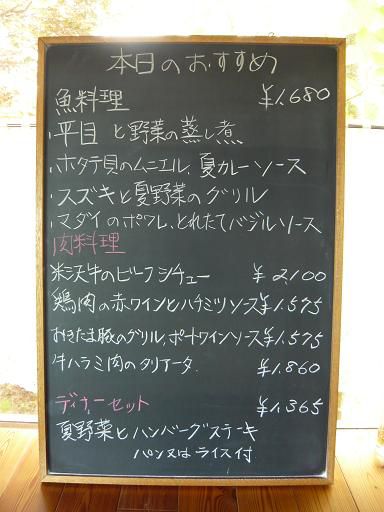 本日のおすすめ
魚料理 ¥1.680
・平目と野菜の蒸し煮
・ホタテ貝のムニエル、夏カレーソース
・スズキと夏野菜のグリル
・マダイのポワレ、とれたてバジルソース
肉料理
米沢牛のビーフシチュー ¥2,100
鶏肉の赤ワインとハチミツソース ¥1.575
おきたま豚のグリル、ポートワインソース ¥1.575
牛ハラミ肉のタリアータ. ¥1.860
ディナーセット ¥1.365
夏野菜とハンバーグステーキ
パン又はライス付